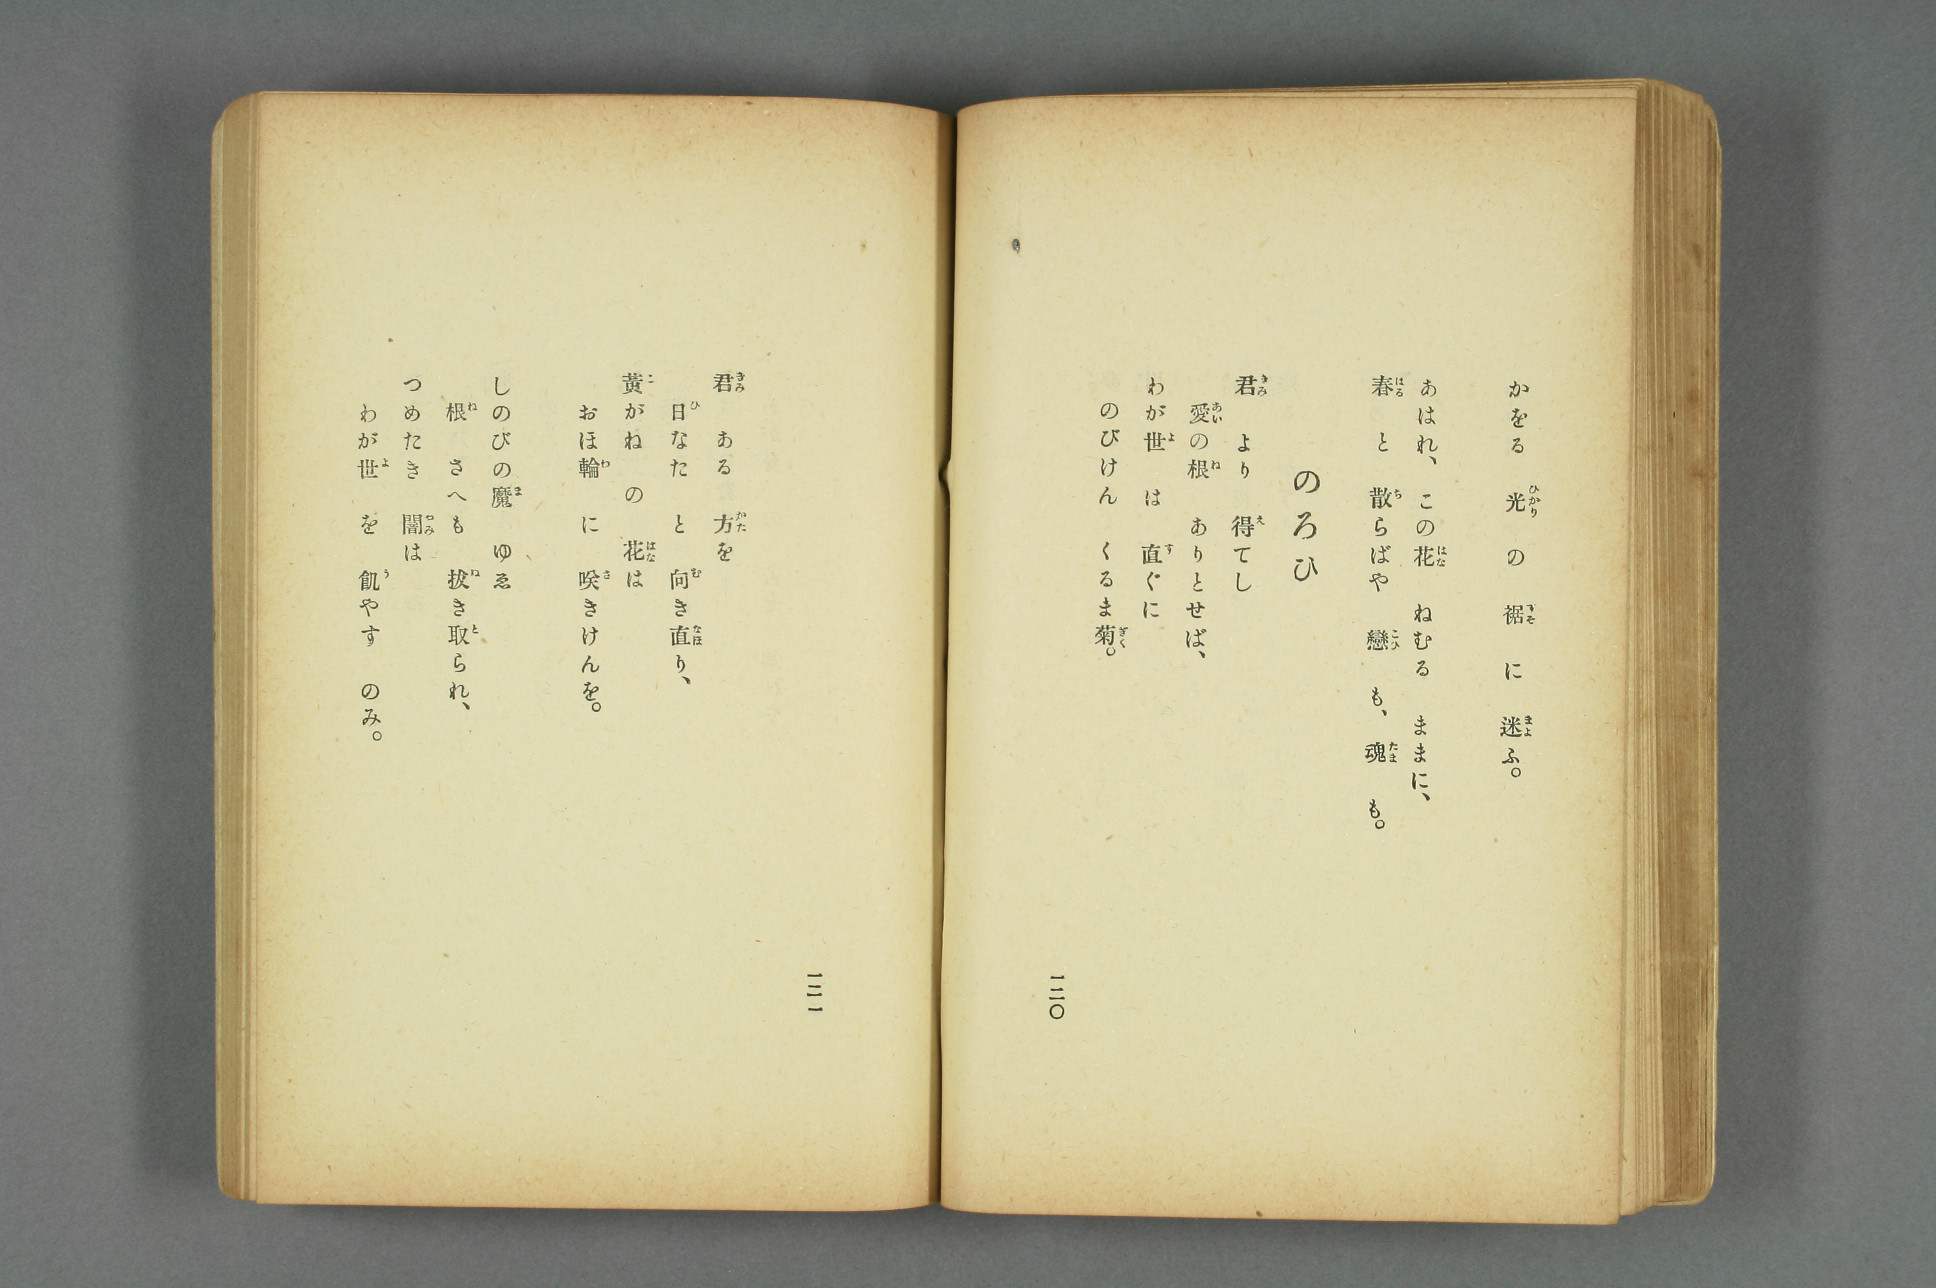 かをる　光の　裾に　迷ふ。
あはれ、この花　ねむる　ままに、
春と　散らばや　戀も、魂も。
のろひ
君　より　得てし
愛の根　ありとせば、
わが世　は　直ぐに
のびけん　くるま菊。
一二〇
君　ある　方を
日なた　と　向き直り、
黄がね　の　花は
おほ輪　に　咲きけんを。
しのびの魔　ゆゑ
根　さへも　拔き取られ、
つめたき　闇は
わが世　を　飢やす　のみ。
一二一